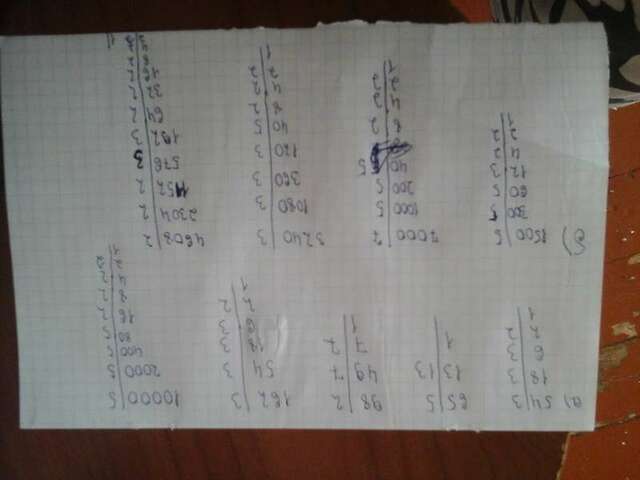 а) 54|3 65|5 98|2 162|3 10000|5
18|3 13|13 49|7 54|3 2000|5
6|3 1 7|7 18|3 400|5
2|2 1 6|3 80|5
1 2|2 16|2
1 8|2
4|2
2|2
1
б) 1500|5 7000|7 3240|3 4608|2
300|5 1000|5 1080|3 2304|2
60|5 200|5 360|3 1152|2
12|3 40|5 120|3 576|3
4|2 8|2 40|5 192|3
2|2 4|2 8|2 64|2
1 2|2 4|2 32|2
1 2|2 16|2
1 8|2
4|2
2|2
1